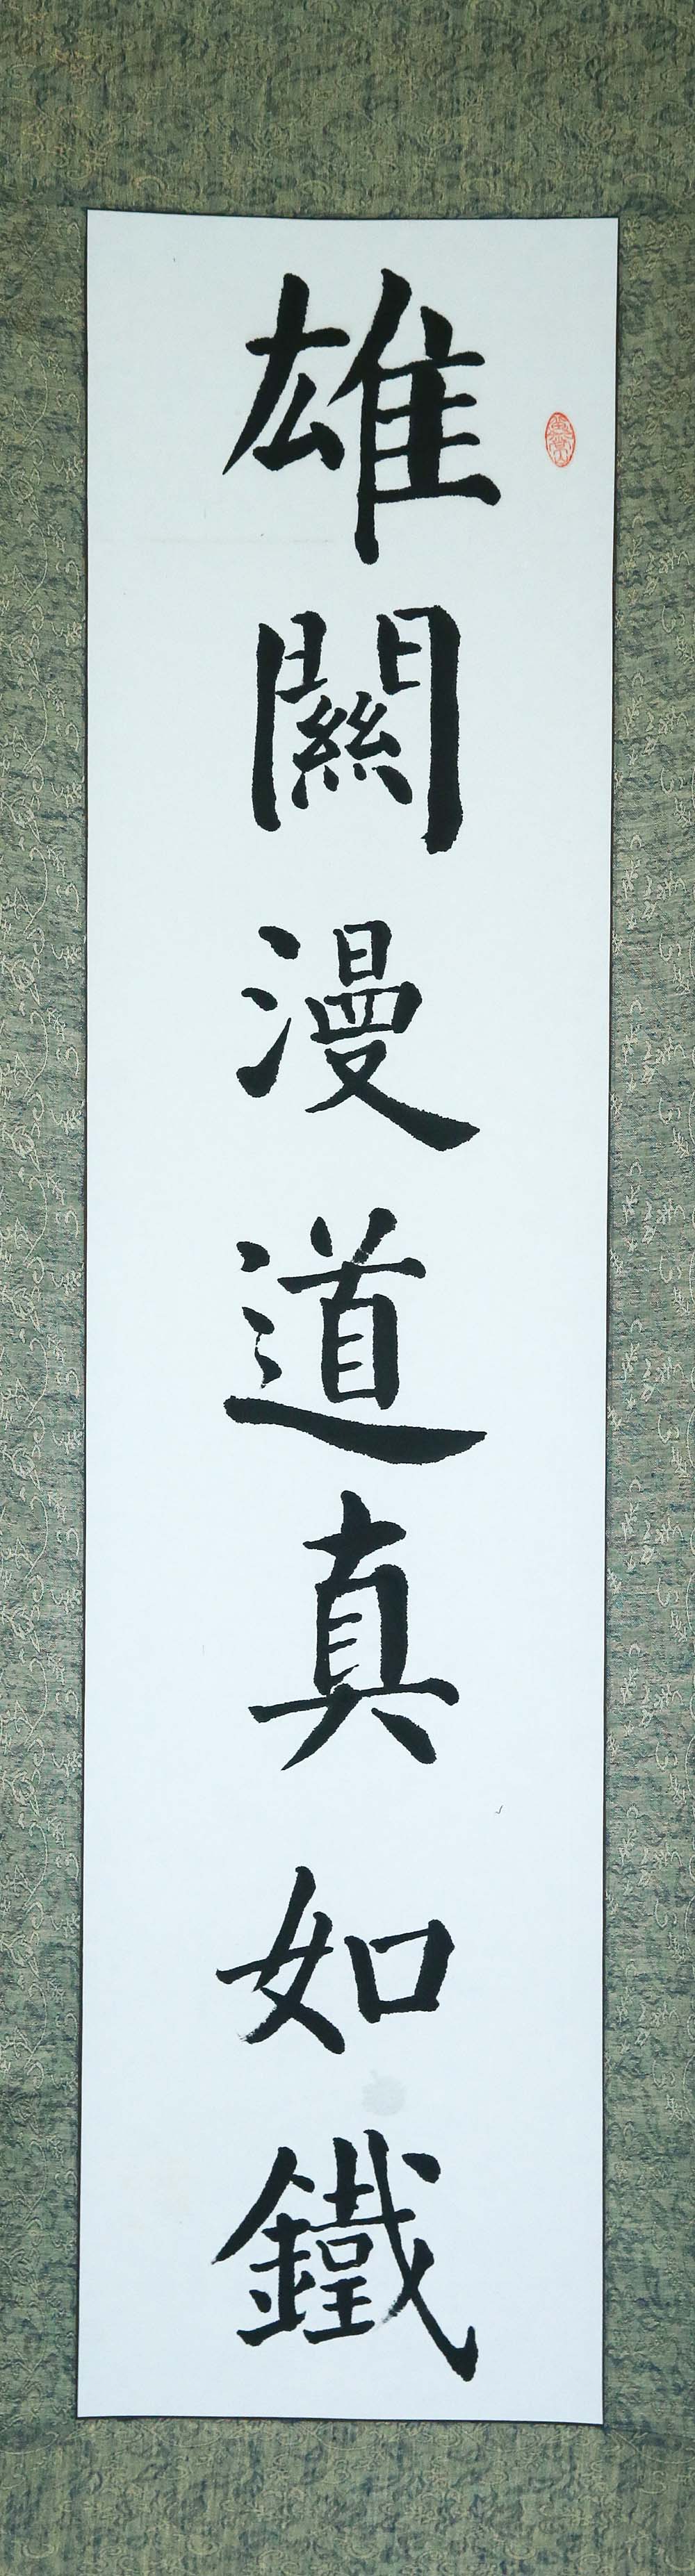 雄關漫道真如鐵